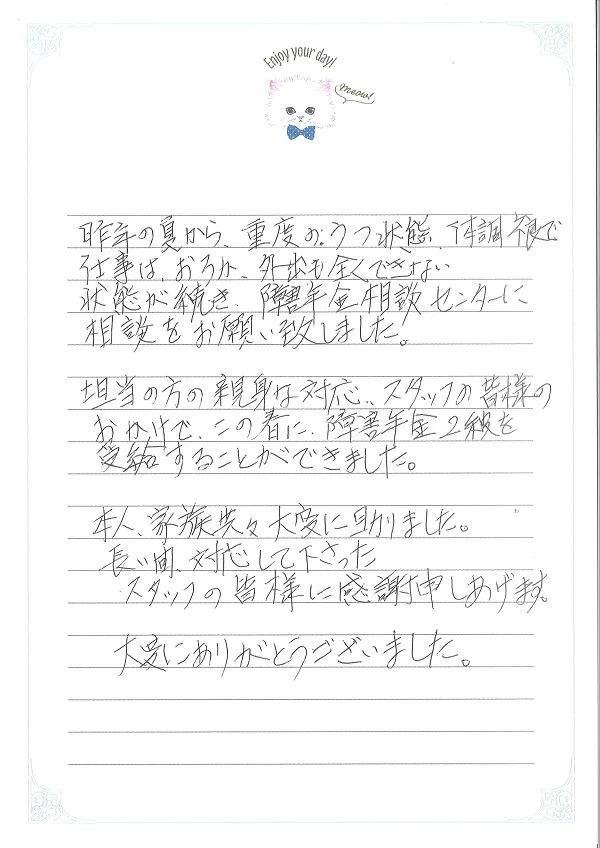 Enjoy your day!
meow!
昨年の夏から、重度のうつ状態、体調不良で
仕事は、おろか、外出も全くできない
状態が続き、障害年金相談センターに
相談をお願い致しました。
担当の方の親身な対応、スタッフの皆様の
おかげで、この春に、障害年金2級を
受給することができました。
本人、家族共々大変に助かりました。
長い間、対応して下さった
スタッフの皆様に感謝申しあげます。
大変にありがとうございました。